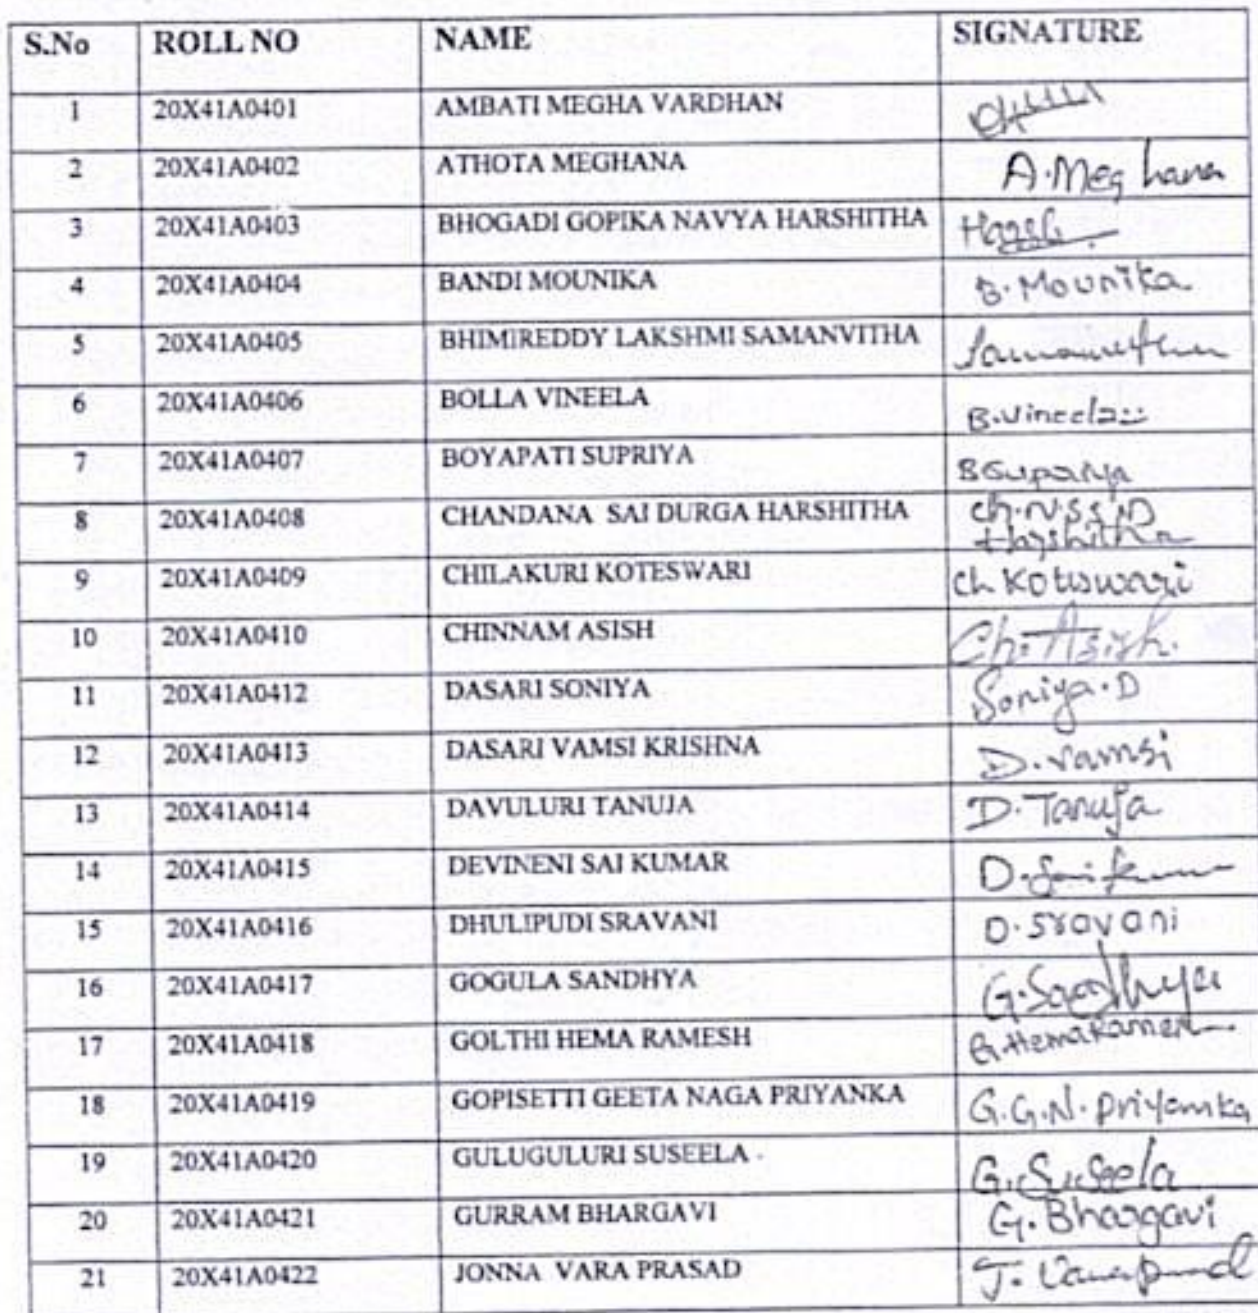 S.No ROLL NO NAME SIGNATURE
1 20X41A0401 AMBATI MEGHA VARDHAN
2 20X41A0402 ATHOTA MEGHANA A.Meghana
3 20X41A0403 BHOGADI GOPIKA NAVYA HARSHITHA Harsh
4 20X41A0404 BANDI MOUNIKA B.Mounika
5 20X41A0405 BHIMIREDDY LAKSHMI SAMANVITHA
6 20X41A0406 BOLLA VINEELA B.Vineela
7 20X41A0407 BOYAPATI SUPRIYA B Supariya
8 20X41A0408 CHANDANA SAI DURGA HARSHITHA Ch.N.S.S.D
Harshitha
9 20X41A0409 CHILAKURI KOTESWARI Ch Koteswari
10 20X41A0410 CHINNAM ASISH Ch. Asish.
11 20X41A0412 DASARI SONIYA Soniya.D
12 20X41A0413 DASARI VAMSI KRISHNA D.Vamsi
13 20X41A0414 DAVULURI TANUJA D.Tanuja
14 20X41A0415 DEVINENI SAI KUMAR D.Saikumar
15 20X41A0416 DHULIPUDI SRAVANI D.Sravani
16 20X41A0417 GOGULA SANDHYA G.Sandhya
17 20X41A0418 GOLTHI HEMA RAMESH G.HemaRamesh
18 20X41A0419 GOPISETTI GEETA NAGA PRIYANKA G.G.N.Priyanka
19 20X41A0420 GULUGULURI SUSEELA G.Suseela
20 20X41A0421 GURRAM BHARGAVI G.Bhargavi
21 20X41A0422 JONNA VARA PRASAD J.